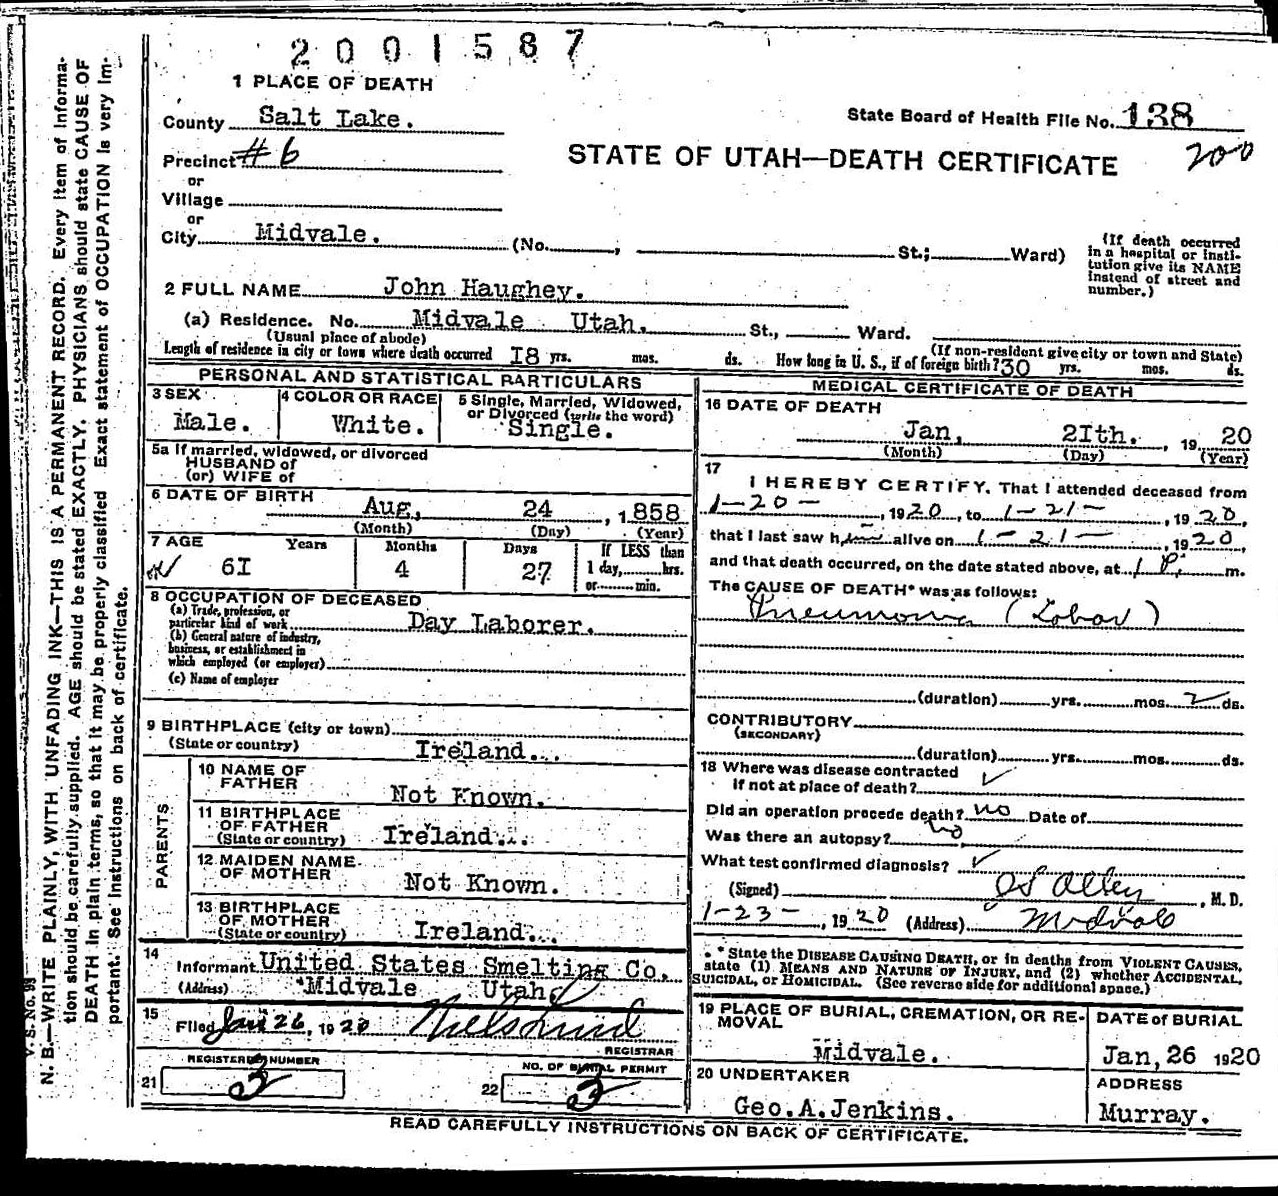 2001587
1 PLACE OF DEATH
County Salt Lake.
State Board of Health File No. 138
Precinct #6
STATE OF UTAH—DEATH CERTIFICATE
200
or
Village
or
City Midvale. (No. , St.; Ward)
(If death occurred
in a hospital or insti-
tution give its NAME
instead of street and
number.)
2 FULL NAME John Haughey.
(a) Residence. No. Midvale Utah. St., Ward.
(Usual place of abode)
(If non-resident give city or town and State)
Length of residence in city or town where death occurred I8 yrs. mos. ds. How long in U. S., if of foreign birth? 30 yrs. mos. ds.
PERSONAL AND STATISTICAL PARTICULARS
3 SEX
Male.
4 COLOR OR RACE
White.
5 Single, Married, Widowed,
or Divorced (write the word)
Single.
5a If married, widowed, or divorced
HUSBAND of
(or) WIFE of
6 DATE OF BIRTH
Aug, 24 , 1858
(Month) (Day) (Year)
7 AGE Years Months Days If LESS than
6I 4 27 1 day, hrs.
or min.
8 OCCUPATION OF DECEASED
(a) Trade, profession, or
particular kind of work Day Laborer.
(b) General nature of industry,
business, or establishment in
which employed (or employer)
(c) Name of employer
9 BIRTHPLACE (city or town)
(State or country) Ireland.
PARENTS
10 NAME OF
FATHER Not Known.
11 BIRTHPLACE
OF FATHER
(State or country) Ireland.
12 MAIDEN NAME
OF MOTHER Not Known.
13 BIRTHPLACE
OF MOTHER
(State or country) Ireland.
14
Informant United States Smelting Co,
(Address) Midvale Utah,
15
Filed Jan 26, 1920
REGISTRAR
REGISTERED NUMBER
21 3
NO. OF BURIAL PERMIT
22 3
MEDICAL CERTIFICATE OF DEATH
16 DATE OF DEATH
Jan, 2Ith. , 1920
(Month) (Day) (Year)
17
I HEREBY CERTIFY, That I attended deceased from
1-20- , 1920, to 1-21- , 1920,
that I last saw him alive on 1-21- , 1920,
and that death occurred, on the date stated above, at 1 P. m.
The CAUSE OF DEATH* was as follows:
Pneumonia (Lobar)
(duration) yrs. mos. 2 ds.
CONTRIBUTORY
(SECONDARY)
(duration) yrs. mos. ds.
18 Where was disease contracted
if not at place of death? ✓
Did an operation precede death? no Date of
Was there an autopsy? no
What test confirmed diagnosis? ✓
(Signed) , M. D.
1-23- , 1920 (Address) Midvale
* State the DISEASE CAUSING DEATH, or in deaths from VIOLENT CAUSES,
state (1) MEANS AND NATURE OF INJURY, and (2) whether ACCIDENTAL,
SUICIDAL, or HOMICIDAL. (See reverse side for additional space.)
19 PLACE OF BURIAL, CREMATION, OR RE-
MOVAL
Midvale.
DATE of BURIAL
Jan, 26 1920
20 UNDERTAKER
Geo.A.Jenkins.
ADDRESS
Murray.
READ CAREFULLY INSTRUCTIONS ON BACK OF CERTIFICATE.
V. S. No. 93
N. B.—WRITE PLAINLY, WITH UNFADING INK—THIS IS A PERMANENT RECORD. Every item of informa-
tion should be carefully supplied. AGE should be stated EXACTLY. PHYSICIANS should state CAUSE OF
DEATH in plain terms, so that it may be properly classified Exact statement of OCCUPATION is very im-
portant. See instructions on back of certificate.